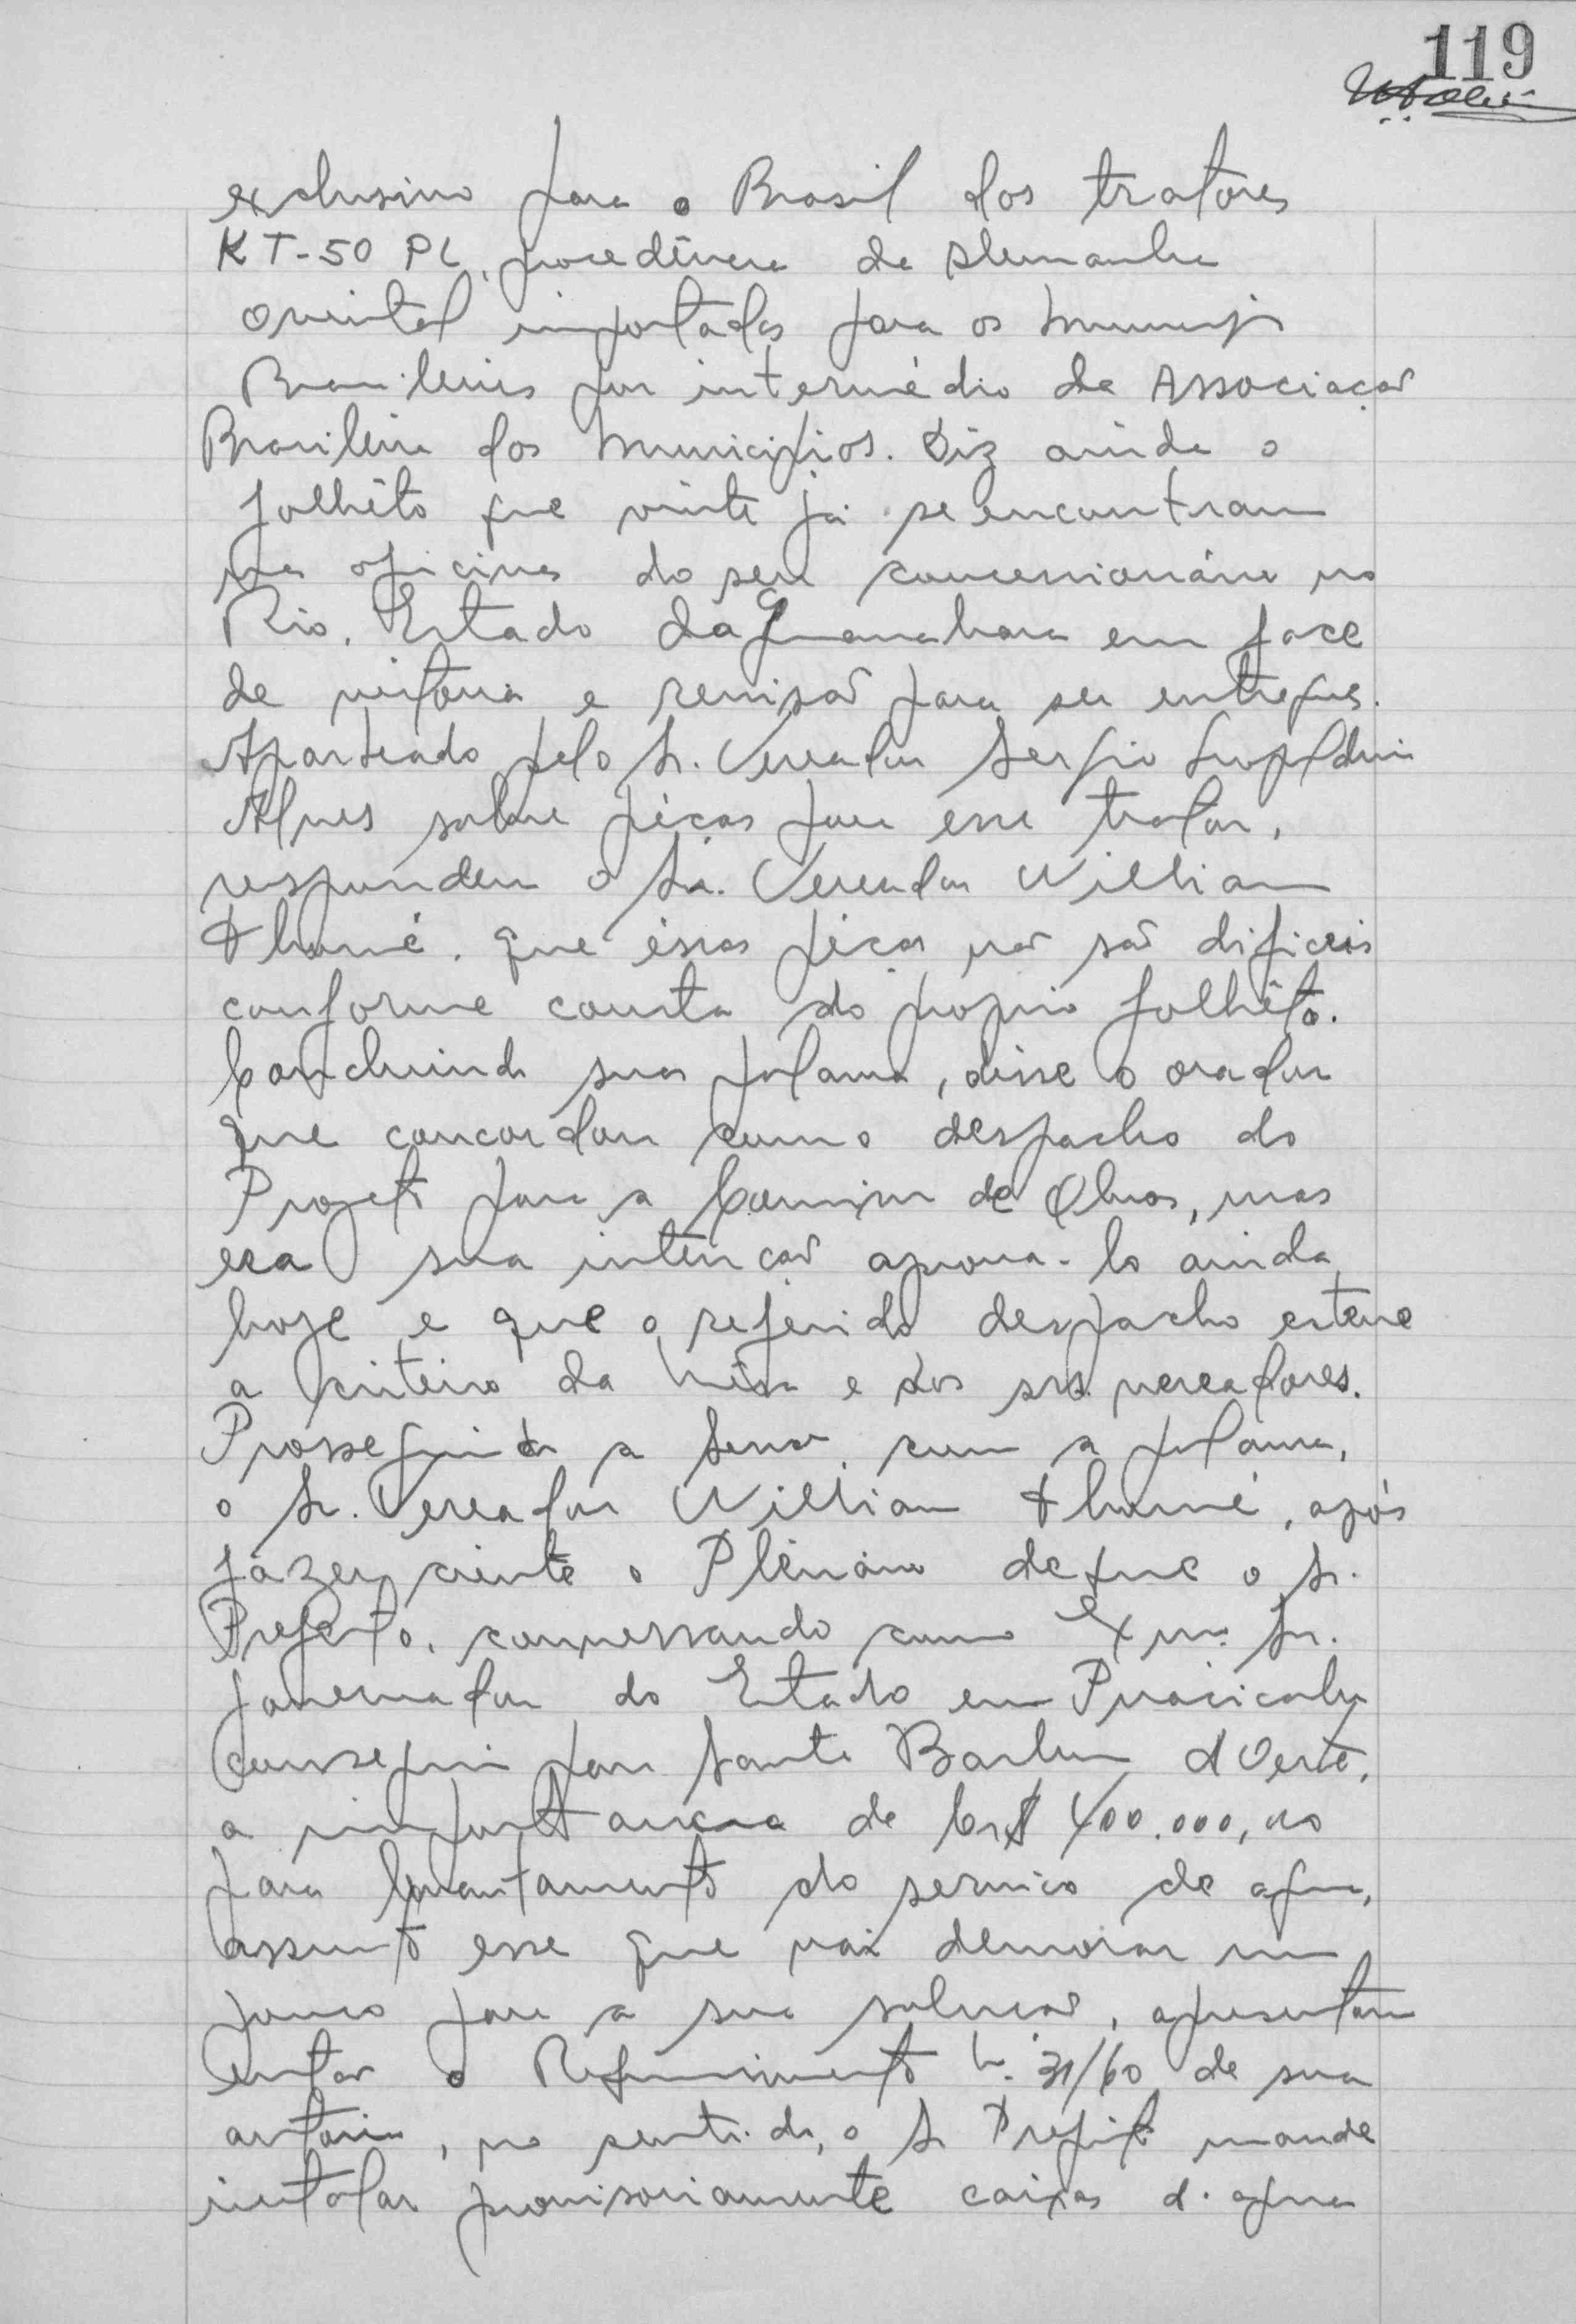 119
exclusivo para o Brasil dos tratores
KT-50 PL, procedência da Alemanha
Oriental importados para os Municipi
Brasileiros por intermédio da Associação
Brasileira dos Municipios. Diz ainda o
folhêto que vinte já se encontram
nas oficinas do seu concessionário no
Rio, Estado da Guanabara em face
de vistoria e revisão para ser entregues.
Aparteado pelo Sr. Vereador Sergio Leopoldino
Alves sobre peças para esse trator,
respondeu o Sr. Vereador Willian
Thomé, que éssas peças não são dificeis
conforme consta do proprio folhêto.
Concluindo sua palavra, disse o orador
que concordou com o despacho do
Projeto para a Comissão de Obras, mas
era sua intenção aprova-lo ainda
hoje e que o referido despacho esteve
a criteiro da Mêsa e dos srs. vereadores.
Prosseguindo a Sessão, com a palavra,
o Sr. Vereador Willian Thomé, após
fazer ciente o Plenário de que o Sr.
Prefeito, conversando com o Exmº Sr.
Governador do Estado em Piracicaba
conseguiu para Santa Barbara d'Oeste,
a importancia de Cr$ 400.000,00
para levantamento do serviço de agua,
assunto esse que vai demorar um
pouco para a sua solução, apresentou
então o Requerimento N. 31/60 de sua
autoria, no sentido, o Sr Prefeito mande
instalar provisoriamente caixas d'agua